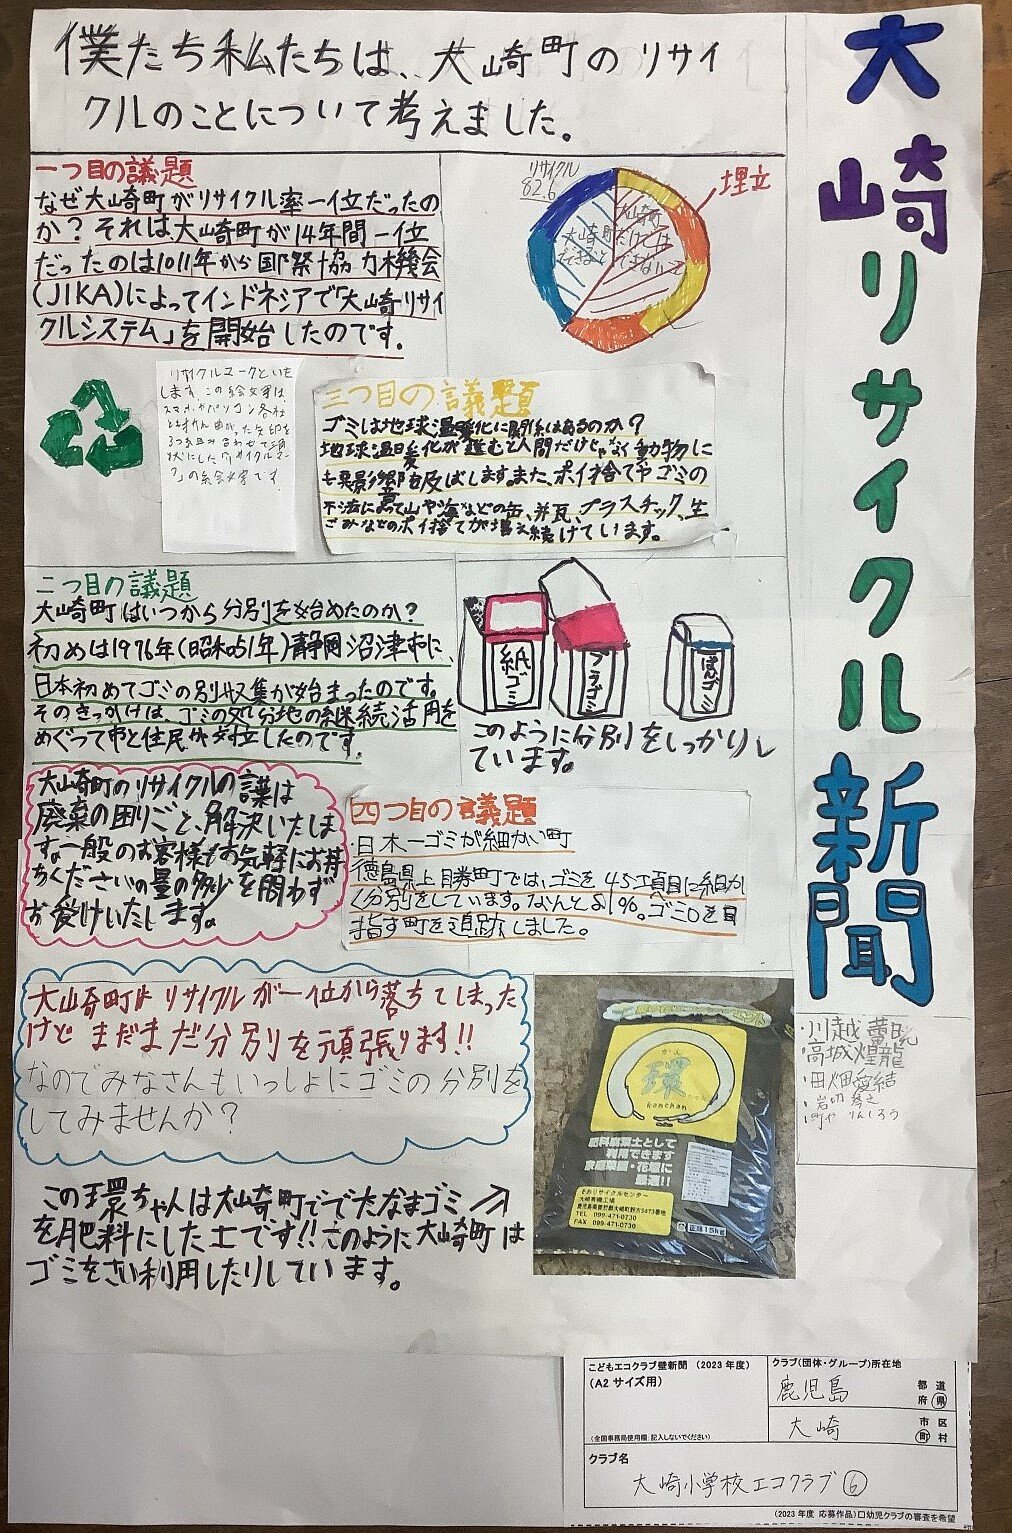 大崎リサイクル新聞
僕たち私たちは、大崎町のリサイ
クルのことについて考えました。
一つ目の議題
なぜ大崎町がリサイクル率一位だったの
か?それは大崎町が14年間一位
だったのは1011年から国際協力機会
(JIKA)によってインドネシアで「大崎リサイ
クルシステム」を開始したのです.
リサイクル
82.6
埋立
大崎町
大崎町だけでは
できない
リサイクルマークといを
します。この絵文字は
スマホやパソコン各社
三つ目の議題
ゴミは地球温暖化に関係はあるのか?
地球温暖化が進むと人間だけじゃなく動物に
も悪影響を及ばします。また、ポイ捨てやゴミの
不法によって山や海などの缶、并瓦、プラスチック、生
ごみなどのポイ捨てが増え続けています。
二つ目の議題
大崎町はいつから分別を始めたのか?
初めは1976年(昭和51年)静岡沼津市に、
日本初めてゴミの別収集が始まったのです。
そのきっかけは、ゴミの処分地の継続活用を
めぐって市と住民が対立したのです.
紙ゴミ
プラゴミ
ぱんゴミ
このように分別をしっかりし
ています。
大崎町のリサイクルの言葉は
廃棄の困りごと、解決いたしま
す。一般のお客様もお気軽にお持
ちくださいの量の多少を問わず
お受けいたします。
四つ目の議題
・日本一ゴミが細かい町
徳島県上勝町では、ゴミを45項目に細か
く分別をしています。なんと81%。ゴミ0を目
指す町を追跡しました。
大崎町はリサイクルが一位から落ちてしまった
けど まだまだ分別を頑張ります!!
なのでみなさんもいっしょにゴミの分別を
してみませんか?
この環ちゃんは大崎町ででたなまゴミ
を肥料にした土です!!このように大崎町は
ゴミをさい利用したりしています。
環
kanchan
肥料腐葉土として
利用できます
家庭菜園・花壇に
最適!!
そおリサイクルセンター
大崎有機工場
鹿児島県曽於郡大崎町野方5473番地
TEL 099-471-0730
FAX 099-471-0730
正味15kg
・川越
・高城煌龍
・田畑愛結
・岩切
・町や りんしろう
こどもエコクラブ壁新聞 (2023年度)
(A2サイズ用)
(全国事務局使用欄 記入しないでください)
クラブ(団体・グループ)所在地
鹿児島 都道府県
大崎 市区町村
クラブ名
大崎小学校エコクラブ⑥
(2023年度 応募作品)□幼児クラブの審査を希望